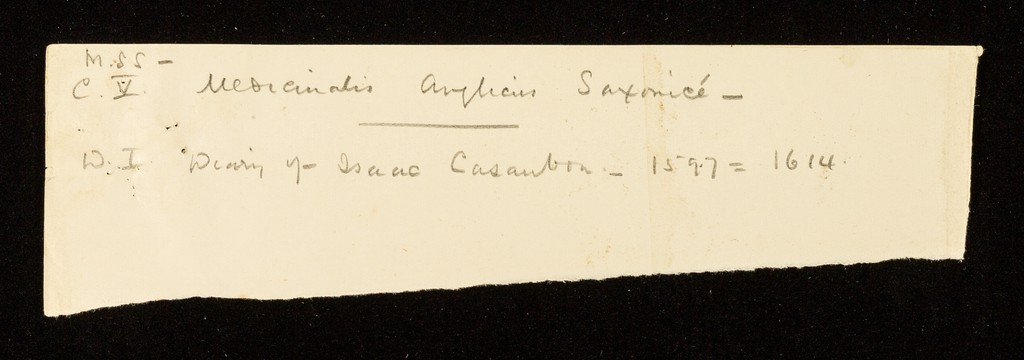 M.SS –
C. V. Medicinalis Anglicus Saxonicé –
D. I Diary of Isaac Casaubon – 1597 = 1614.